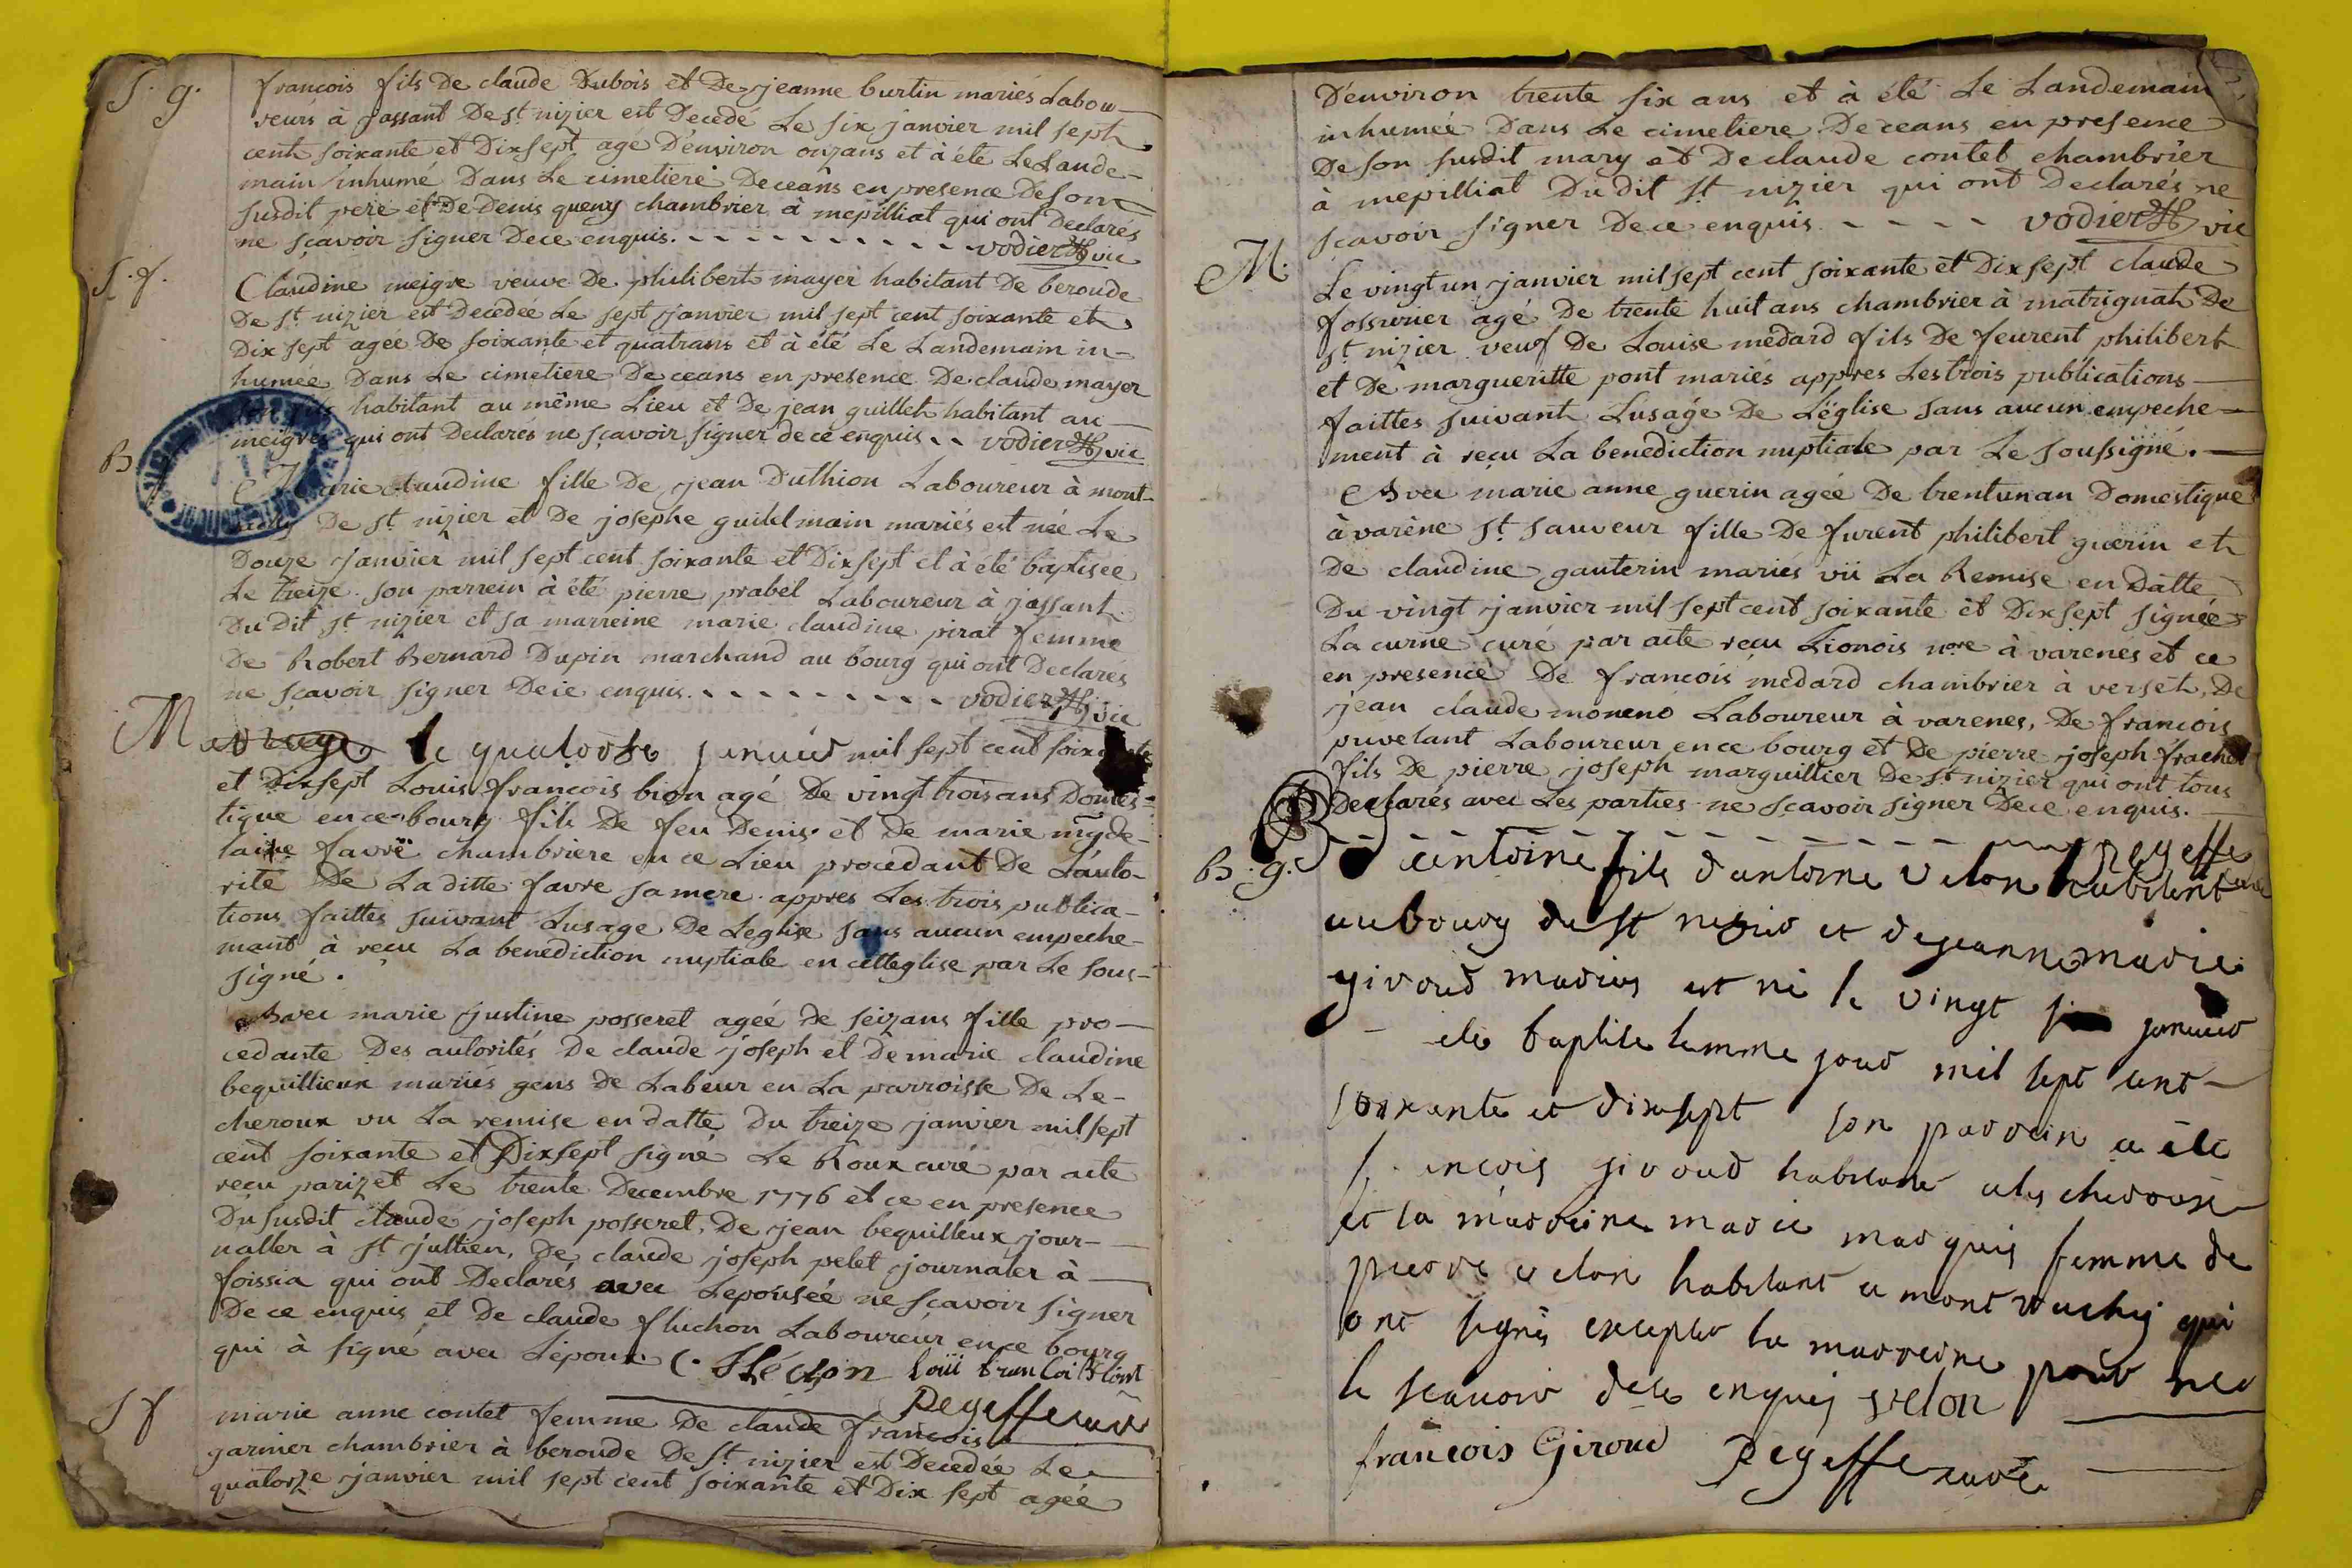 S. g.
françois fils De claude Dubois et De jeanne burtin mariés Labou-
reurs à jassant De St nizier est Decedé Le six janvier mil sept
cent soixante et Dixsept agé D'environ onzans et à été Le Lande-
main inhumé Dans Le cimetiere De ceans en presence De son
susdit pere et De Denis queny chambrier à mepilliat qui ont Declarés
ne sçavoir signer De ce enquis. - - - - - - - - - - vodier vic
S. f.
Claudine meigre veuve De philibert mayer habitant De beroude
De St nizier est Decedée Le sept janvier mil sept cent soixante et
Dix sept agée De soixante et quatrans et à été Le Landemain in-
humée Dans Le cimetiere De ceans en presence De claude mayer
son fils habitant au même Lieu et De jean guillet habitant au
meigres qui ont Declares ne sçavoir signer de ce enquis - - vodier vic
B
Marie claudine fille De jean Duthion Laboureur à mont-
De St nizier et De josephe guillelmain mariés est née Le
Douze janvier mil sept cent soixante et Dixsept et à été baptisée
Le treize son parrein à été pierre prabel Laboureur à jassant
Du dit St nizier et sa marreine marie claudine pirat femme
De Robert Bernard Dupin marchand au bourg qui ont Declarés
ne sçavoir signer De ce enquis. - - - - - - - - - vodier vic
M le quatorze janvier mil sept cent soixante
et Dixsept Louis françois bion agé De vingt trois ans Domes-
tique en ce bourg fils De feu Denis et De marie magde-
laine favre chambriere en ce Lieu procedant De L'auto-
rité De La ditte favre sa mere appres Les trois publica-
tions faittes suivant Lusage De Leglise sans aucun empeche-
mant à reçu La benediction nuptiale en cetteglise par Le sous-
signé.
Avec marie justine posseret agée de seizans fille pro-
cedante Des autorités De claude joseph et De marie claudine
bequillieux mariés gens de Labeur en La parroisse De Le-
cheroux vu La remise en datte Du treize janvier mil sept
cent soixante et Dixsept signé Le Roux curé par acte
reçu parizet Le trente Decembre 1776 et ce en presence
Du susdit claude joseph posseret, De jean bequilleux jour-
nallier à St jullien, De claude joseph pelet journalier à
foissia qui ont Declarés avec Lepousée ne sçavoir signer
De ce enquis et De claude fluchon Laboureur en ce bourg
qui à signé avec Lepoux. C. fléchon
Regeffe curé
S f
marie anne contet femme De claude françois
garnier chambrier à beroude De St nizier est Decedée Le
quatorze janvier mil sept cent soixante et Dix sept agée
D'environ trente six ans et à été Le Landemain
inhumée Dans Le cimetiere De ceans en presence
De son susdit mary et De claude contet chambrier
à mepilliat Du dit St nizier qui ont Declarés ne
sçavoir signer De ce enquis - - - - vodier vic
M.
Le vingt un janvier mil sept cent soixante et Dix sept claude
fossurier agé De trente huit ans chambrier à matrignat De
St nizier veuf De Louise medard fils De feurent philibert
et De margueritte pont mariés appres Les trois publications
faittes suivant Lusage De Léglise sans aucun empeche-
ment à reçu La benediction nuptiale par Le soussigné.
Avec marie anne guerin agée De trentunan Domestique
à varène St sauveur fille De furent philibert guerin et
De claudine gauterin mariés vü La Remise en Datte
Du vingt janvier mil sept cent soixante et Dixsept signée
La curne curé par acte reçu Lionois nore à varenes et ce
en presence De françois medard chambrier à verset, De
jean claude moneno Laboureur à varenes, De françois
puvelant Laboureur en ce bourg et De pierre joseph frachet
fils De pierre joseph marguillier De St nizier qui ont tous
Declarés avec Les parties ne sçavoir signer De ce enquis.
Regeffe curé
B. g.
antoine fils d'antoine velon habitant
au bourg de st nizier et de jeanne marie
giroud mariés est né le vingt janvier
ete baptisé le mme jour mil sept cent
soixante et dixsept son parrein a été
françois giroud habitant a les cheroux
et la marreine marie marquis femme de
pierre velon habitant a montrachy qui
ont signés excepter la marreine pour ne
le scavoir de ce enquis velon
francois Giroud Regeffe curé